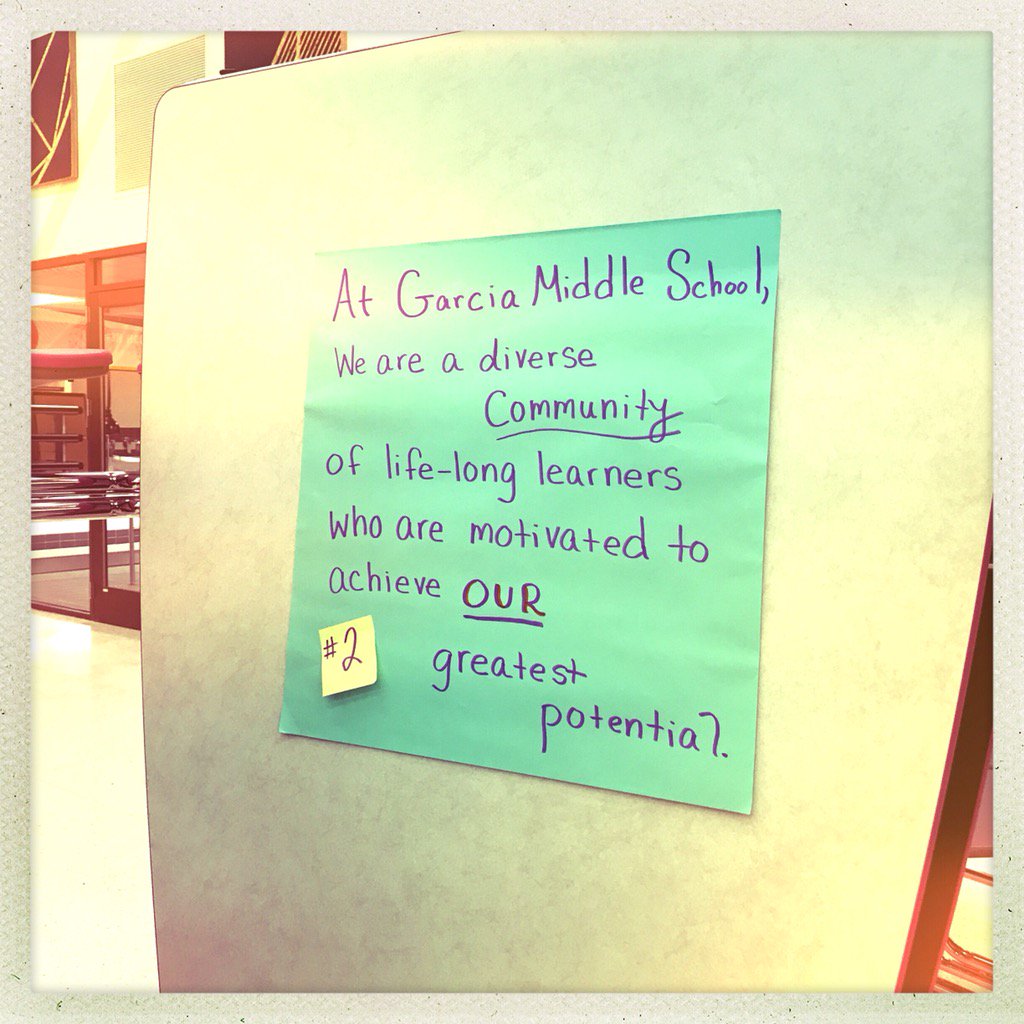 At Garcia Middle School,
We are a diverse
Community
of life-long learners
who are motivated to
achieve OUR
#2
greatest
potential.